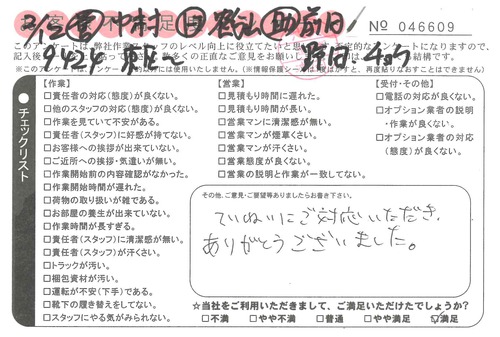 No 046609
このアンケートは、弊社作業スタッフのレベル向上に役立てたいと思
チェックリスト
【作業】
□責任者の対応(態度)が良くない。
□他のスタッフの対応(態度)が良くない。
□作業を見ていて不安がある。
□責任者(スタッフ)に好感が持てない。
□お客様への挨拶が出来ていない。
□ご近所への挨拶・気遣いが無い。
□作業開始前の内容確認がなかった。
□作業開始時間が遅れた。
□荷物の取り扱いが雑である。
□お部屋の養生が出来ていない。
□作業時間が長すぎる。
□責任者(スタッフ)に清潔感が無い。
□責任者(スタッフ)が汗くさい。
□トラックが汚い。
□梱包資材が汚い。
□運転が不安(下手)である。
□靴下の履き替えをしてない。
□スタッフにやる気がみられない。
【営業】
□見積もり時間に遅れた。
□見積もり時間が長い。
□営業マンに清潔感が無い。
□営業マンが煙草くさい。
□営業マンが汗くさい。
□営業態度が良くない。
□営業の説明と作業が一致してない。
【受付・その他】
□電話の対応が良くない。
□オプション業者の説明
・作業が良くない。
□オプション業者の対応
(態度)が良くない。
その他、ご意見・ご要望等ありましたらお書き下さい。
ていねいにご対応いただき、
ありがとうございました。
☆当社をご利用いただきまして、ご満足いただけたでしょうか?
□不満 □やや不満 □普通 □やや満足 ☑満足